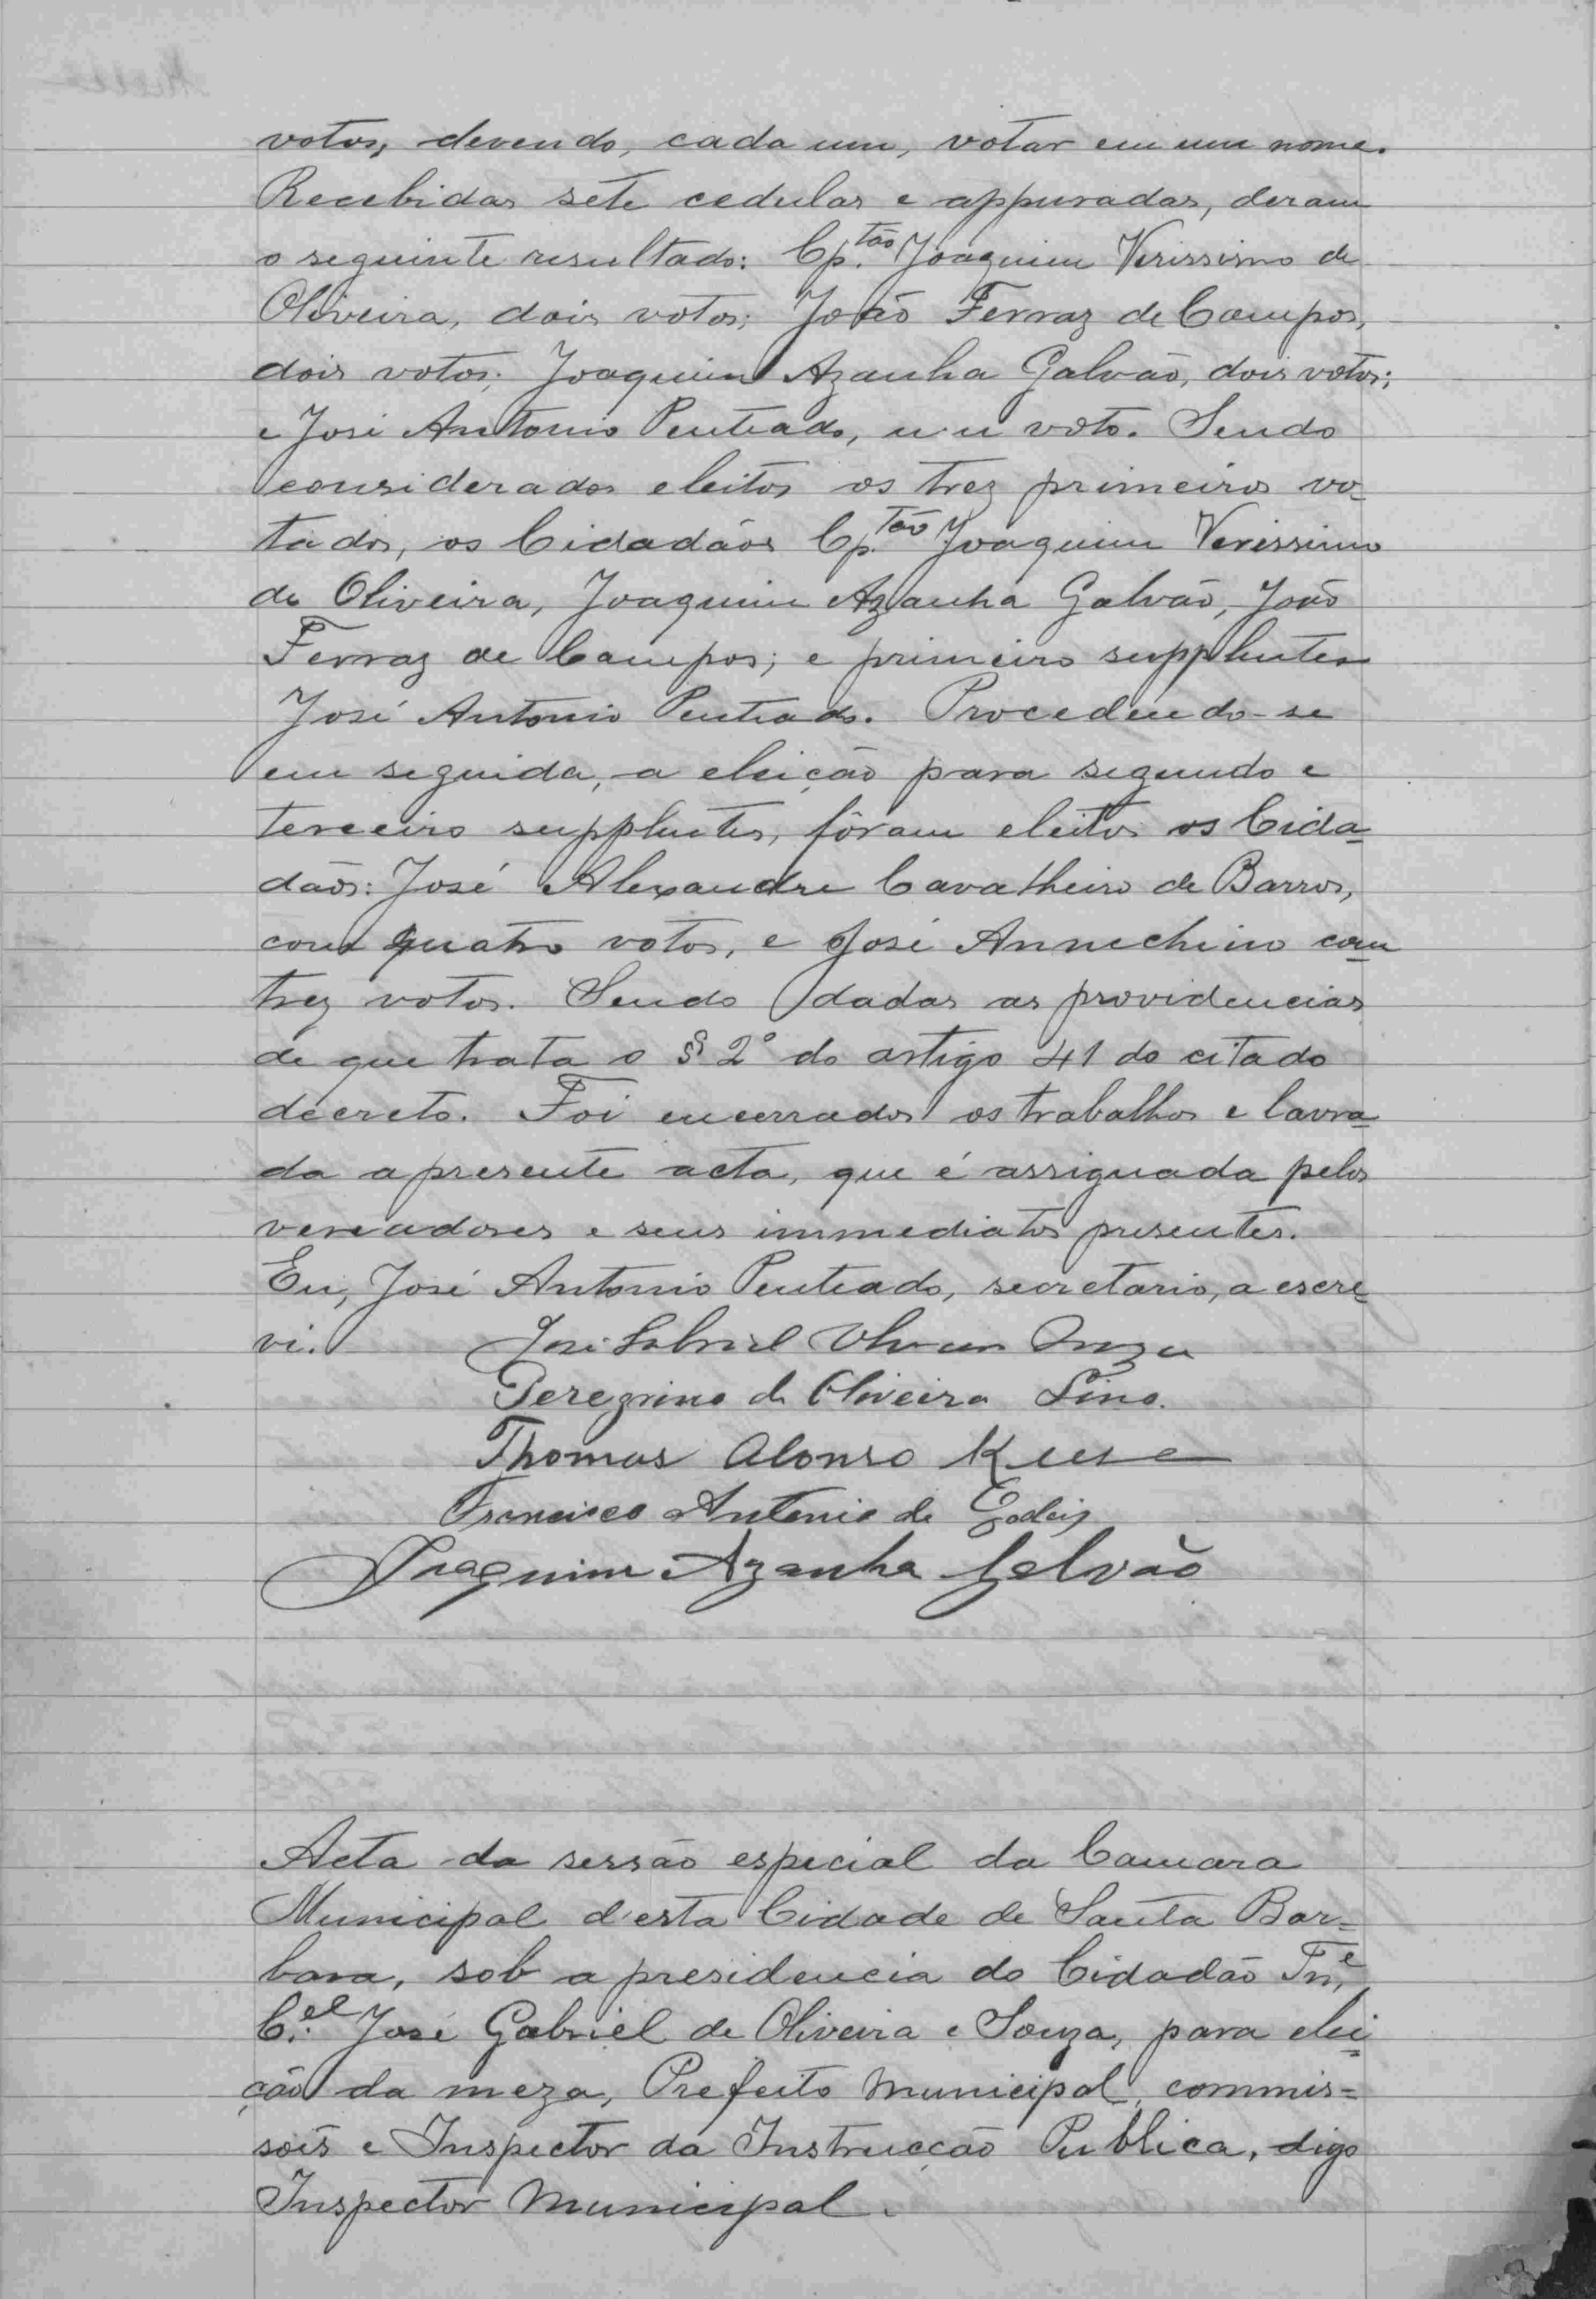 votos, devendo, cada um, votar em um nome.
Recebidas sete cedulas e appuradas, deram
o seguinte resultado: Cp.tão Joaquim Verissimo de
Oliveira, dois votos; João Ferraz de Campos,
dois votos; Joaquim Azanha Galvão, dois votos;
e José Antonio Penteado, um voto. Sendo
considerados eleitos os trez primeiros vo-
tados, os Cidadãos Cp.tão Joaquim Verissimo
de Oliveira, Joaquim Azanha Galvão, João
Ferraz de Campos; e primeiro supplentes
José Antonio Penteado. Procedendo-se
em seguida, a eleição para segundo e
terceiro supplentes, fôram eleitos os Cida-
dãos: José Alexandre Cavalheiro de Barros,
com quatro votos, e José Annechino com
trez votos. Sendo dadas as providencias
de que trata o § 2º do artigo 41 do citado
decreto. Foi encerrados os trabalhos e lavra-
da a presente acta, que é assignada pelos
vereadores e seus immediatos presentes.
Eu, José Antonio Penteado, secretario, a escre-
vi. José Gabriel Oliveira Souza
Peregrino de Oliveira Lino.
Thomas Alonso Keese
Francisco Antonio de Godoy
Joaquim Azanha Galvão
Acta da sessão especial da Camara
Municipal d'esta Cidade de Santa Bar-
bara, sob a presidencia do Cidadão Tn.e
C.el José Gabriel de Oliveira e Souza, para elei-
ção da meza, Prefeito Municipal, commis-
sois e Inspector da Instrucção Publica, digo
Inspector Municipal.